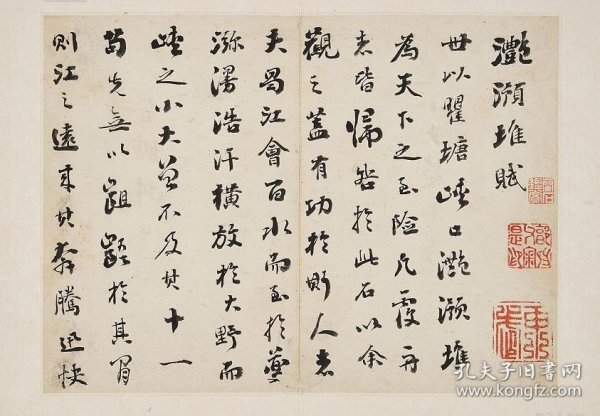 灧澦堆賦
世以瞿塘峽口灧澦堆
為天下之至險凡覆舟
者皆歸咎於此石以余
觀之蓋有功於斯人者
夫蜀江會百水而至於夔
瀰漫浩汗橫放於大野而
峽之小大曾不及其十一
苟先無以齟齬於其間
則江之遠來其奔騰迅快
孔夫子旧书网
www.kongfz.com